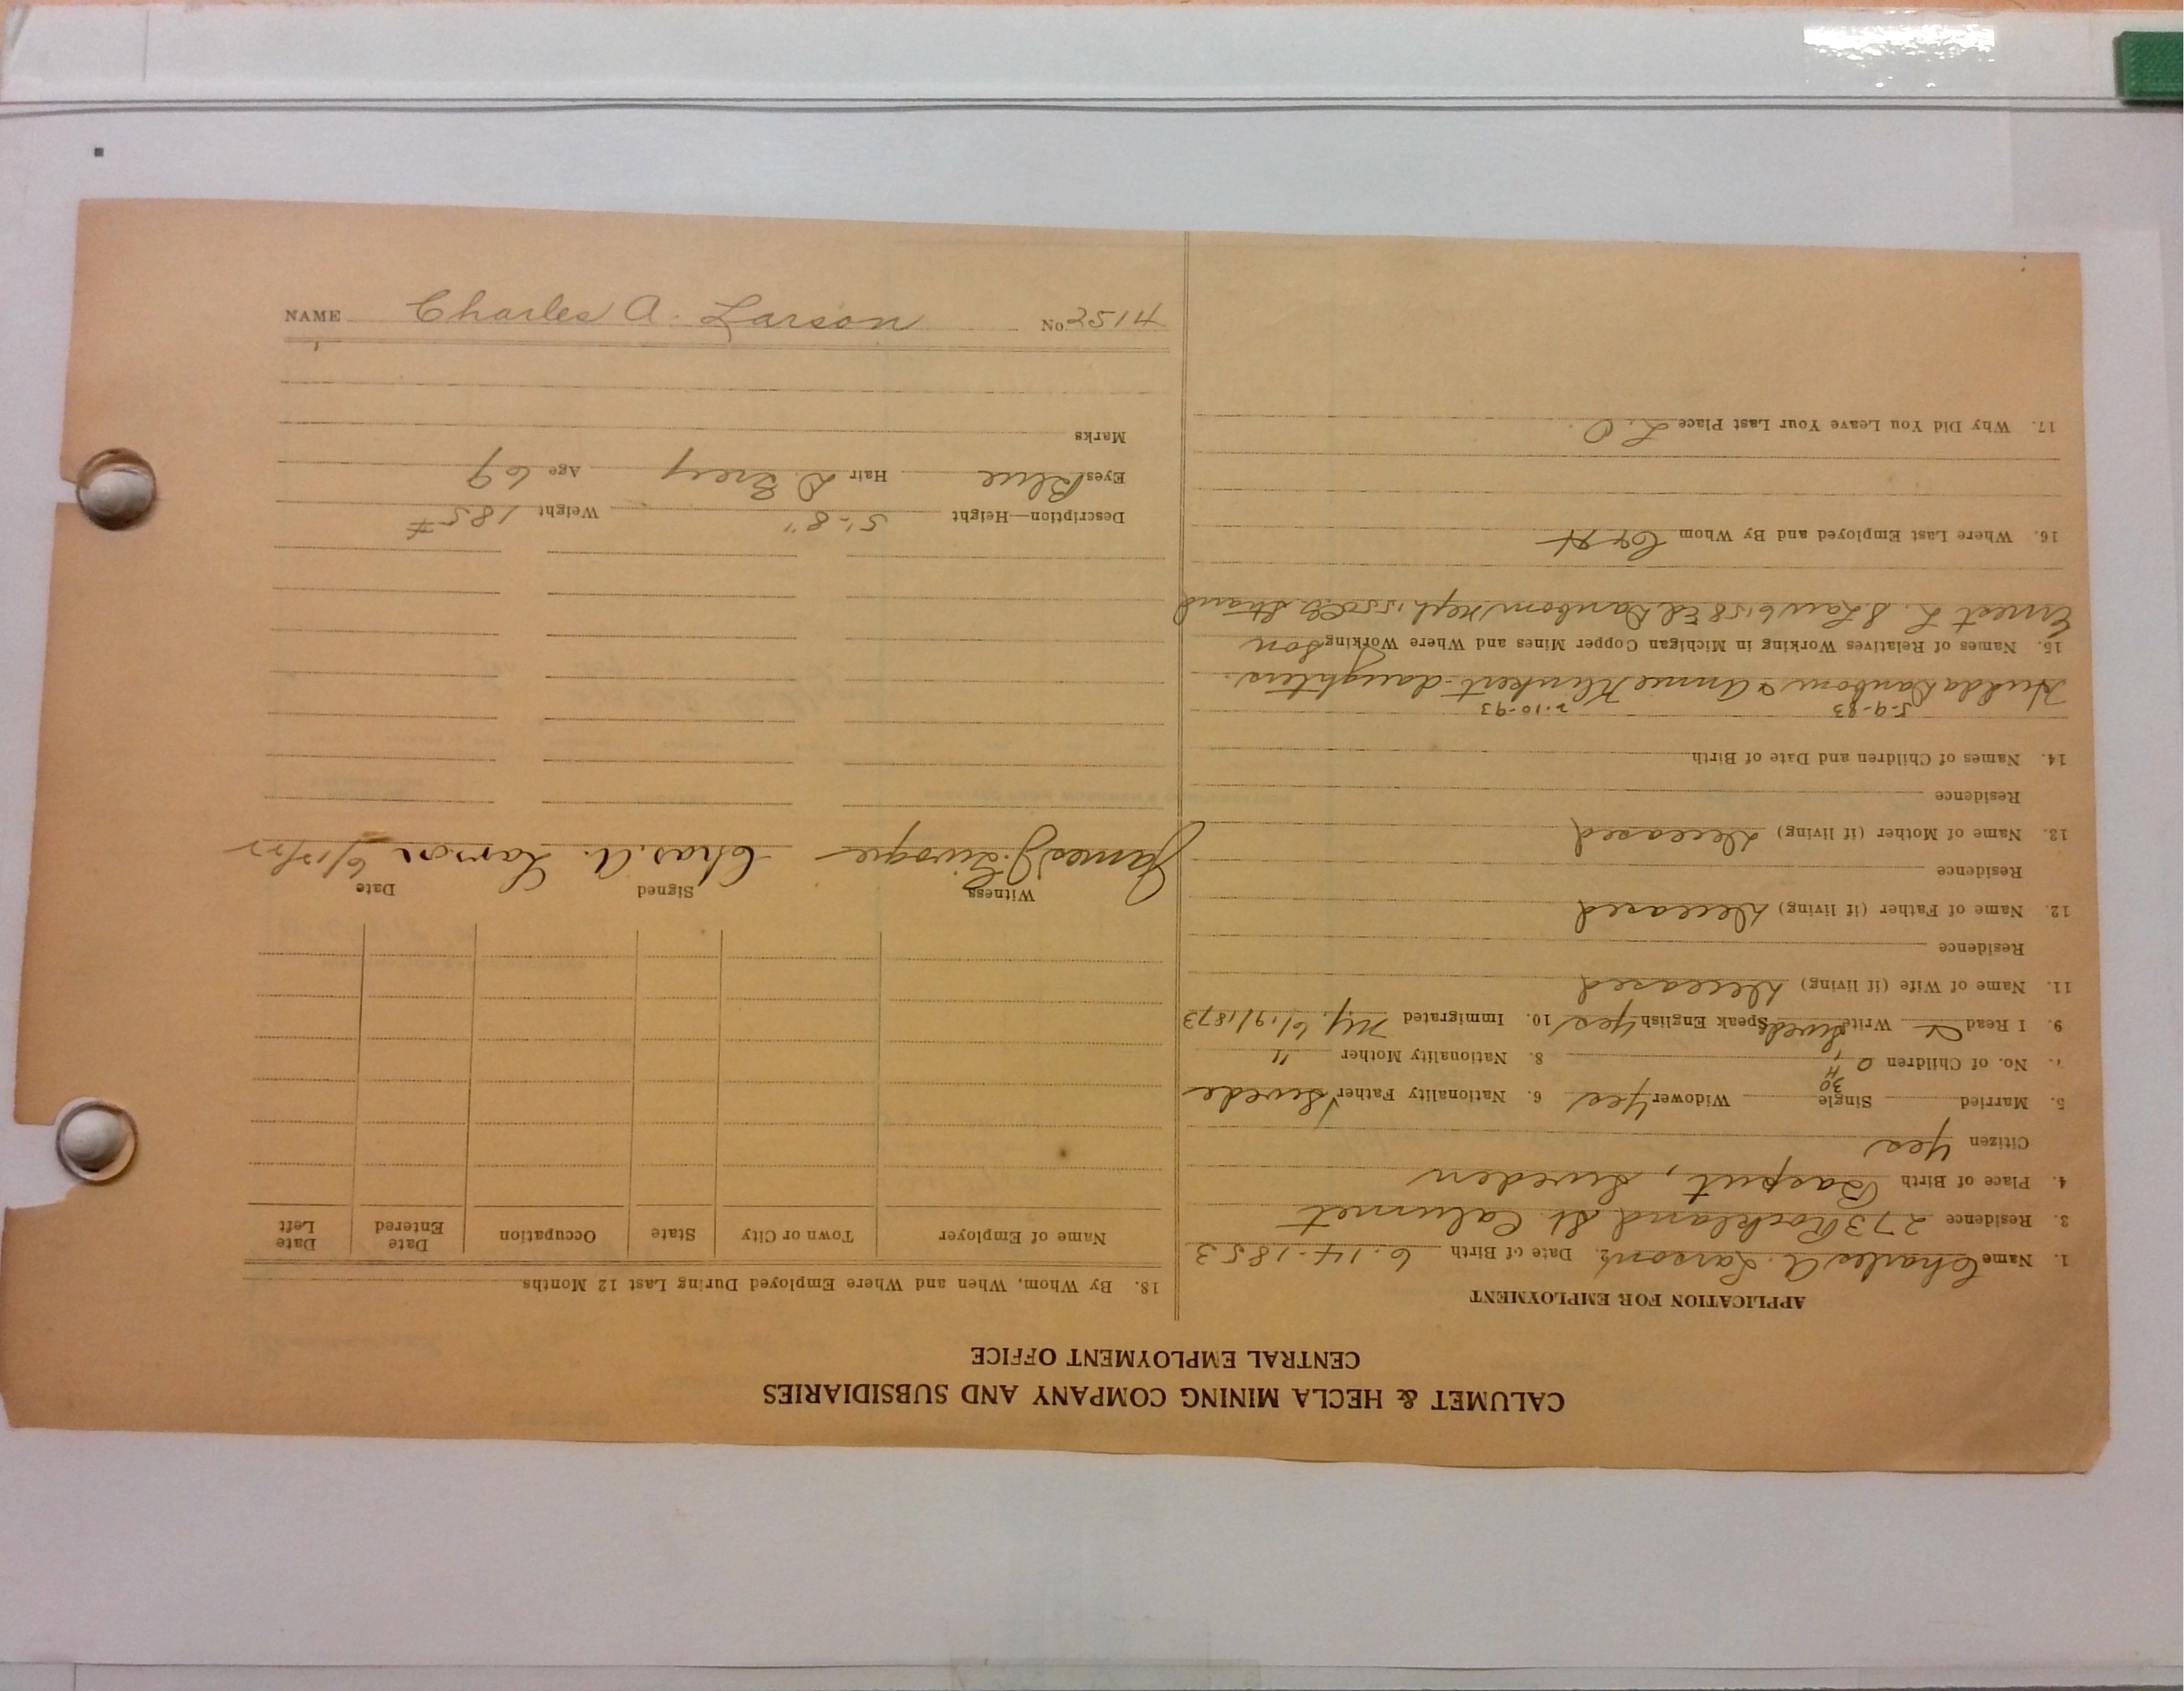 CALUMET & HECLA MINING COMPANY AND SUBSIDIARIES
CENTRAL EMPLOYMENT OFFICE
APPLICATION FOR EMPLOYMENT
1. Name Charles A. Larson 2. Date of Birth 6-14-1853
3. Residence 273 Rockland St. Calumet
4. Place of Birth Sweden
Citizen Yes
30
5. Married Single Widower Yes 6. Nationality Father Swede
7. No. of Children 8. Nationality Mother "
9. I Read Write Swede Speak English Yes 10. Immigrated N.Y. 6/19/1873
11. Name of Wife (if living) Deceased
Residence
12. Name of Father (if living) Deceased
Residence
13. Name of Mother (if living) Deceased
Residence
14. Names of Children and Date of Birth
5-9-83 2-10-93
Hulda Danbom & Annie Klinkert-daughters.
15. Names of Relatives Working in Michigan Copper Mines and Where Working Son
Ernest L. Ed Danbom
16. Where Last Employed and By Whom C&H
17. Why Did You Leave Your Last Place L.O.
18. By Whom, When and Where Employed During Last 12 Months
Name of Employer Town or City State Occupation Date Entered Date Left
Witness Signed Date
James J. Chas. A. Larson 6/12/22
Description—Height 5'-8" Weight 185#
Eyes Blue Hair D. Grey Age 69
Marks
NAME Charles A. Larson No. 2514